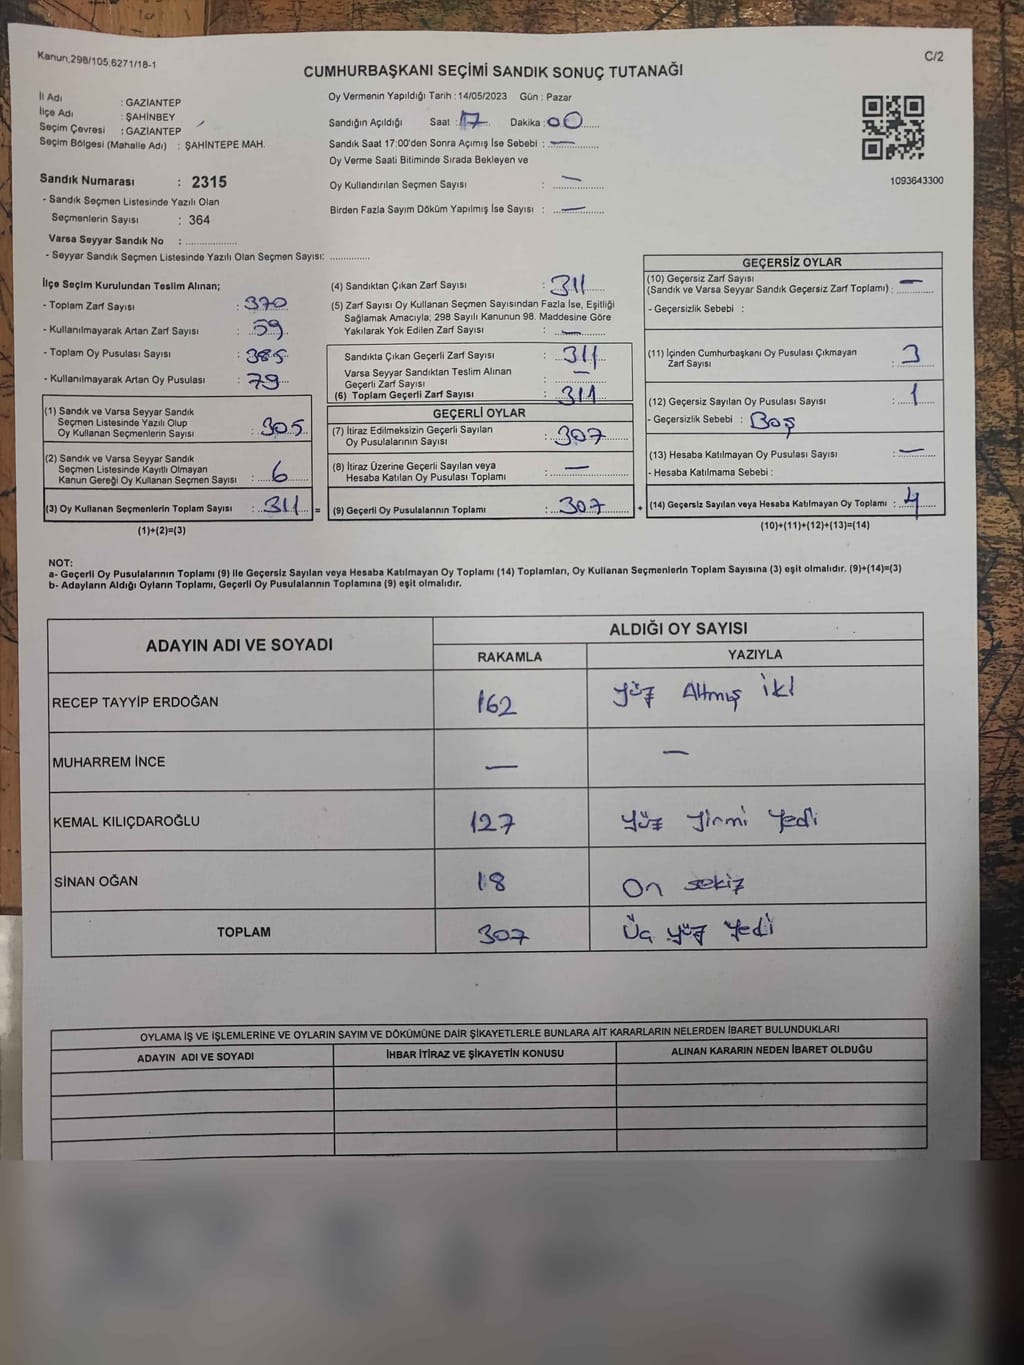 Kanun,298/105,6271/18-1
C/2
CUMHURBAŞKANI SEÇİMİ SANDIK SONUÇ TUTANAĞI
İl Adı : GAZİANTEP
İlçe Adı : ŞAHİNBEY
Seçim Çevresi : GAZİANTEP
Seçim Bölgesi (Mahalle Adı) : ŞAHİNTEPE MAH.
Sandık Numarası : 2315
- Sandık Seçmen Listesinde Yazılı Olan
Seçmenlerin Sayısı : 364
Varsa Seyyar Sandık No : ..................
- Seyyar Sandık Seçmen Listesinde Yazılı Olan Seçmen Sayısı: .............
Oy Vermenin Yapıldığı Tarih : 14/05/2023 Gün : Pazar
Sandığın Açıldığı Saat : 17 Dakika : 00
Sandık Saat 17:00'den Sonra Açımış İse Sebebi : —
Oy Verme Saati Bitiminde Sırada Bekleyen ve
Oy Kullandırılan Seçmen Sayısı : —
Birden Fazla Sayım Döküm Yapılmış İse Sayısı : —
1093643300
İlçe Seçim Kurulundan Teslim Alınan;
- Toplam Zarf Sayısı : 370
- Kullanılmayarak Artan Zarf Sayısı : 59
- Toplam Oy Pusulası Sayısı : 385
- Kullanılmayarak Artan Oy Pusulası : 79
(1) Sandık ve Varsa Seyyar Sandık
Seçmen Listesinde Yazılı Olup
Oy Kullanan Seçmenlerin Sayısı : 305
(2) Sandık ve Varsa Seyyar Sandık
Seçmen Listesinde Kayıtlı Olmayan
Kanun Gereği Oy Kullanan Seçmen Sayısı : 6
(3) Oy Kullanan Seçmenlerin Toplam Sayısı : 311 =
(1)+(2)=(3)
(4) Sandıktan Çıkan Zarf Sayısı : 311
(5) Zarf Sayısı Oy Kullanan Seçmen Sayısından Fazla İse, Eşitliği
Sağlamak Amacıyla; 298 Sayılı Kanunun 98. Maddesine Göre
Yakılarak Yok Edilen Zarf Sayısı : —
Sandıkta Çıkan Geçerli Zarf Sayısı : 311
Varsa Seyyar Sandıktan Teslim Alınan
Geçerli Zarf Sayısı : —
(6) Toplam Geçerli Zarf Sayısı : 311
GEÇERLİ OYLAR
(7) İtiraz Edilmeksizin Geçerli Sayılan
Oy Pusulalarının Sayısı : 307
(8) İtiraz Üzerine Geçerli Sayılan veya
Hesaba Katılan Oy Pusulası Toplamı : —
(9) Geçerli Oy Pusulalarının Toplamı : 307 +
GEÇERSİZ OYLAR
(10) Geçersiz Zarf Sayısı
(Sandık ve Varsa Seyyar Sandık Geçersiz Zarf Toplamı) : —
- Geçersizlik Sebebi :
(11) İçinden Cumhurbaşkanı Oy Pusulası Çıkmayan
Zarf Sayısı : 3
(12) Geçersiz Sayılan Oy Pusulası Sayısı : 1
- Geçersizlik Sebebi : Boş
(13) Hesaba Katılmayan Oy Pusulası Sayısı : —
- Hesaba Katılmama Sebebi :
(14) Geçersiz Sayılan veya Hesaba Katılmayan Oy Toplamı : 4
(10)+(11)+(12)+(13)=(14)
NOT:
a- Geçerli Oy Pusulalarının Toplamı (9) ile Geçersiz Sayılan veya Hesaba Katılmayan Oy Toplamı (14) Toplamları, Oy Kullanan Seçmenlerin Toplam Sayısına (3) eşit olmalıdır. (9)+(14)=(3)
b- Adayların Aldığı Oyların Toplamı, Geçerli Oy Pusulalarının Toplamına (9) eşit olmalıdır.
ADAYIN ADI VE SOYADI
ALDIĞI OY SAYISI
RAKAMLA YAZIYLA
RECEP TAYYİP ERDOĞAN 162 Yüz Altmış iki
MUHARREM İNCE — —
KEMAL KILIÇDAROĞLU 127 Yüz Yirmi Yedi
SİNAN OĞAN 18 On sekiz
TOPLAM 307 Üç yüz Yedi
OYLAMA İŞ VE İŞLEMLERİNE VE OYLARIN SAYIM VE DÖKÜMÜNE DAİR ŞİKAYETLERLE BUNLARA AİT KARARLARIN NELERDEN İBARET BULUNDUKLARI
ADAYIN ADI VE SOYADI İHBAR İTİRAZ VE ŞİKAYETİN KONUSU ALINAN KARARIN NEDEN İBARET OLDUĞU